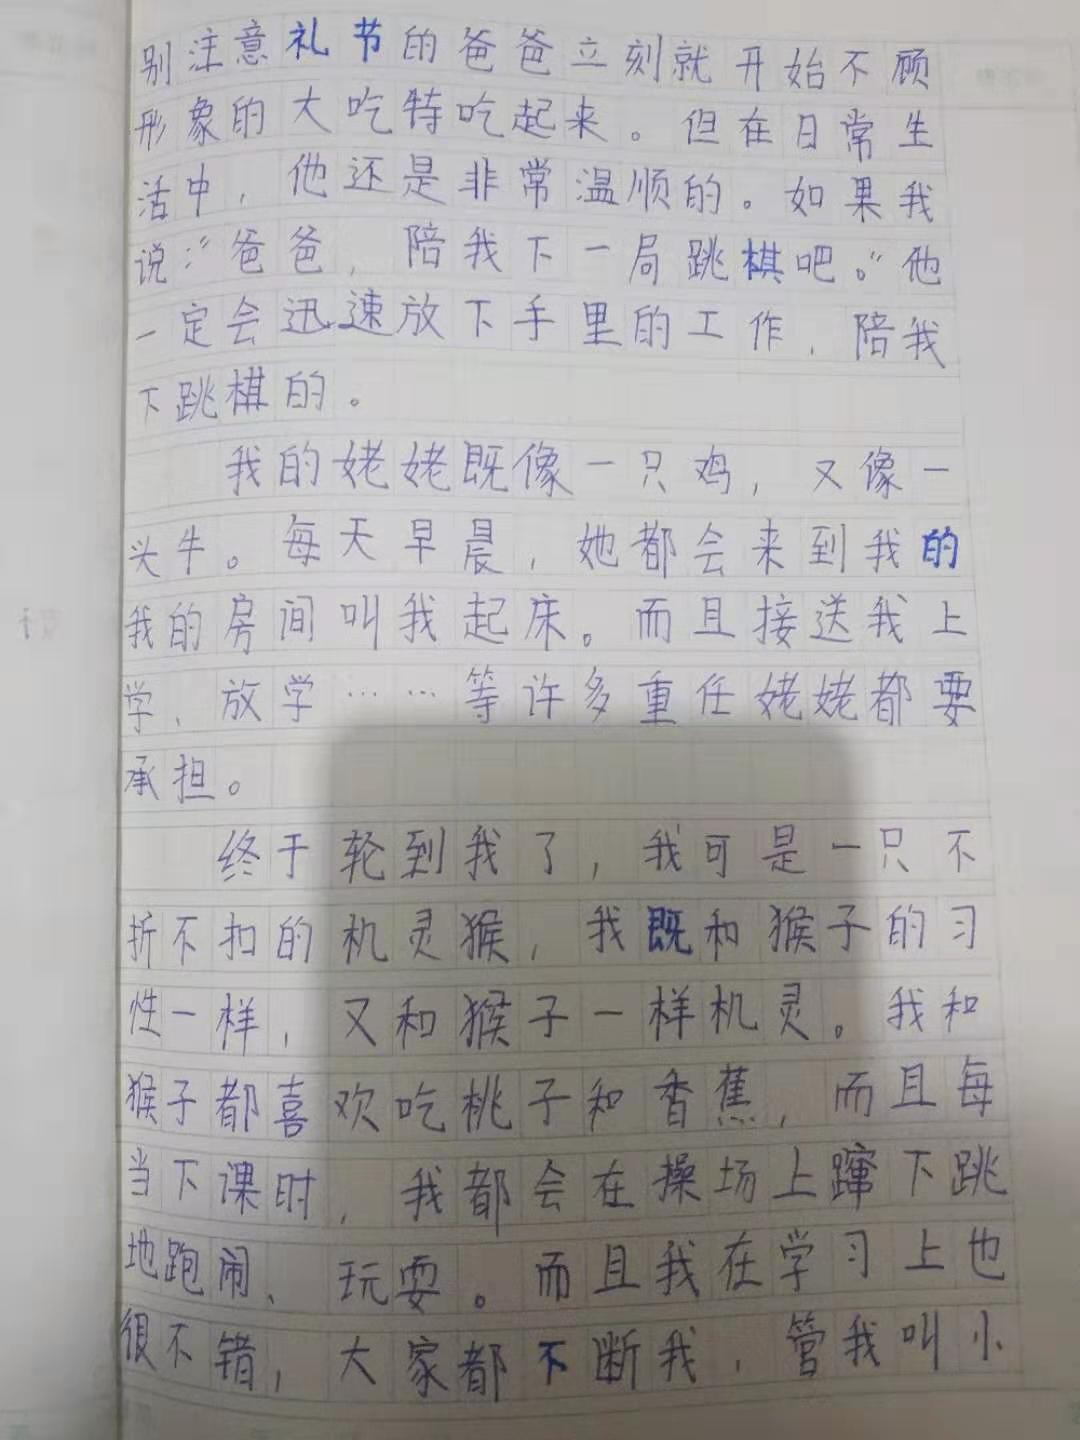 别注意礼节的爸爸立刻就开始不顾
形象的大吃特吃起来。但在日常生
活中，他还是非常温顺的。如果我
说：“爸爸，陪我下一局跳棋吧。”他
一定会迅速放下手里的工作，陪我
下跳棋的。
我的姥姥既像一只鸡，又像一
头牛。每天早晨，她都会来到我的
我的房间叫我起床。而且接送我上
学、放学……等许多重任姥姥都要
承担。
终于轮到我了，我可是一只不
折不扣的机灵猴，我既和猴子的习
性一样，又和猴子一样机灵。我和
猴子都喜欢吃桃子和香蕉，而且每
当下课时，我都会在操场上蹿下跳
地跑闹、玩耍。而且我在学习上也
很不错，大家都不断我，管我叫小